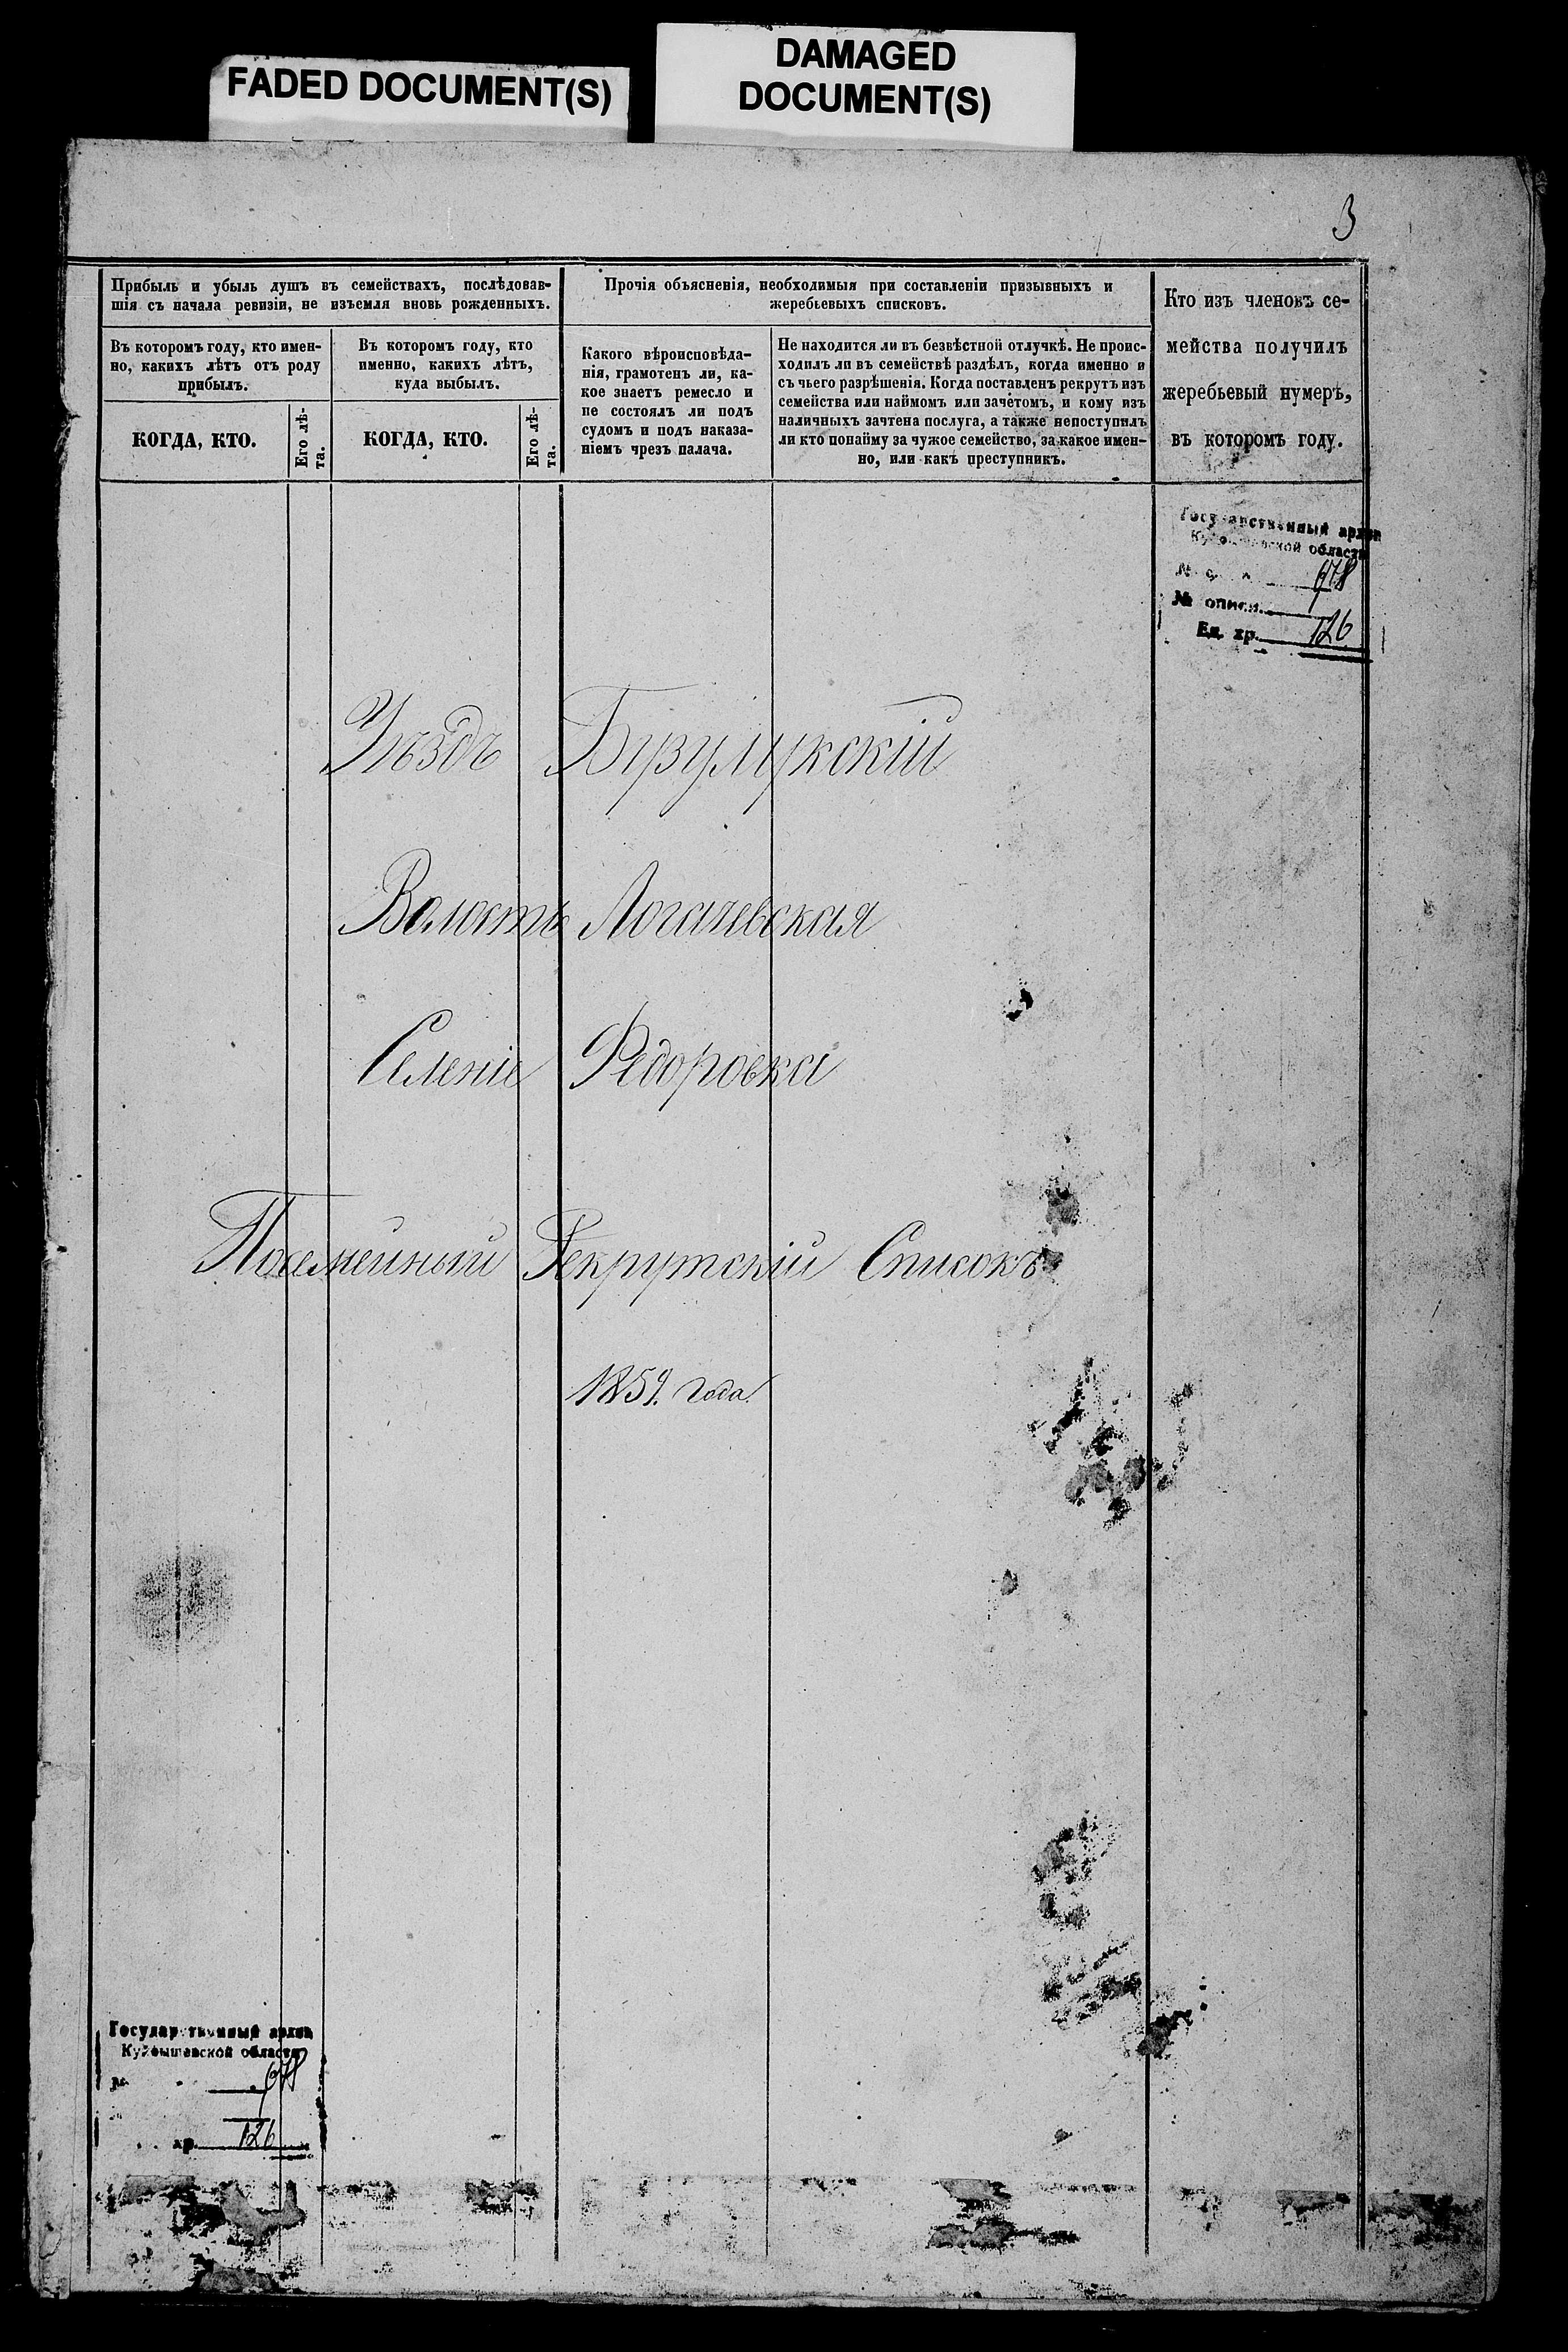 FADED DOCUMENT(S)
DAMAGED
DOCUMENT(S)
3
Прибыль и убыль душъ въ семействахъ, послѣдовав-
шія съ начала ревизіи, не изъемля вновь рожденныхъ.
Въ которомъ году, кто имен-
но, какихъ лѣтъ отъ роду
прибылъ.
КОГДА, КТО.
Его лѣ-
та.
Въ которомъ году, кто
именно, какихъ лѣтъ,
куда выбылъ.
КОГДА, КТО.
Его лѣ-
та.
Прочія объясненія, необходимыя при составленіи призывныхъ и
жеребьевыхъ списковъ.
Какого вѣроисповѣда-
нія, грамотенъ ли, ка-
кое знаетъ ремесло и
не состоялъ ли подъ
судомъ и подъ наказа-
ніемъ чрезъ палача.
Не находится ли въ безвѣстной отлучкѣ. Не проис-
ходилъ ли въ семействѣ раздѣлъ, когда именно и
съ чьего разрѣшенія. Когда поставленъ рекрутъ изъ
семейства или наймомъ или зачетомъ, и кому изъ
наличныхъ зачтена послуга, а также непоступилъ
ли кто понайму за чужое семейство, за какое имен-
но, или какъ преступникъ.
Кто изъ членовъ се-
мейства получилъ
жеребьевый нумеръ,
въ которомъ году.
Государственный архив
Куйбышевской области
№ 678
№ описи 1
Ед. хр. 126
Уѣздъ Бузулукскій
Волость Логачевская
Селеніе Федоровка
Посемейный Рекрутскій Списокъ
1859. года.
Государственный архив
Куйбышевской области
№ 678
1
хр. 126